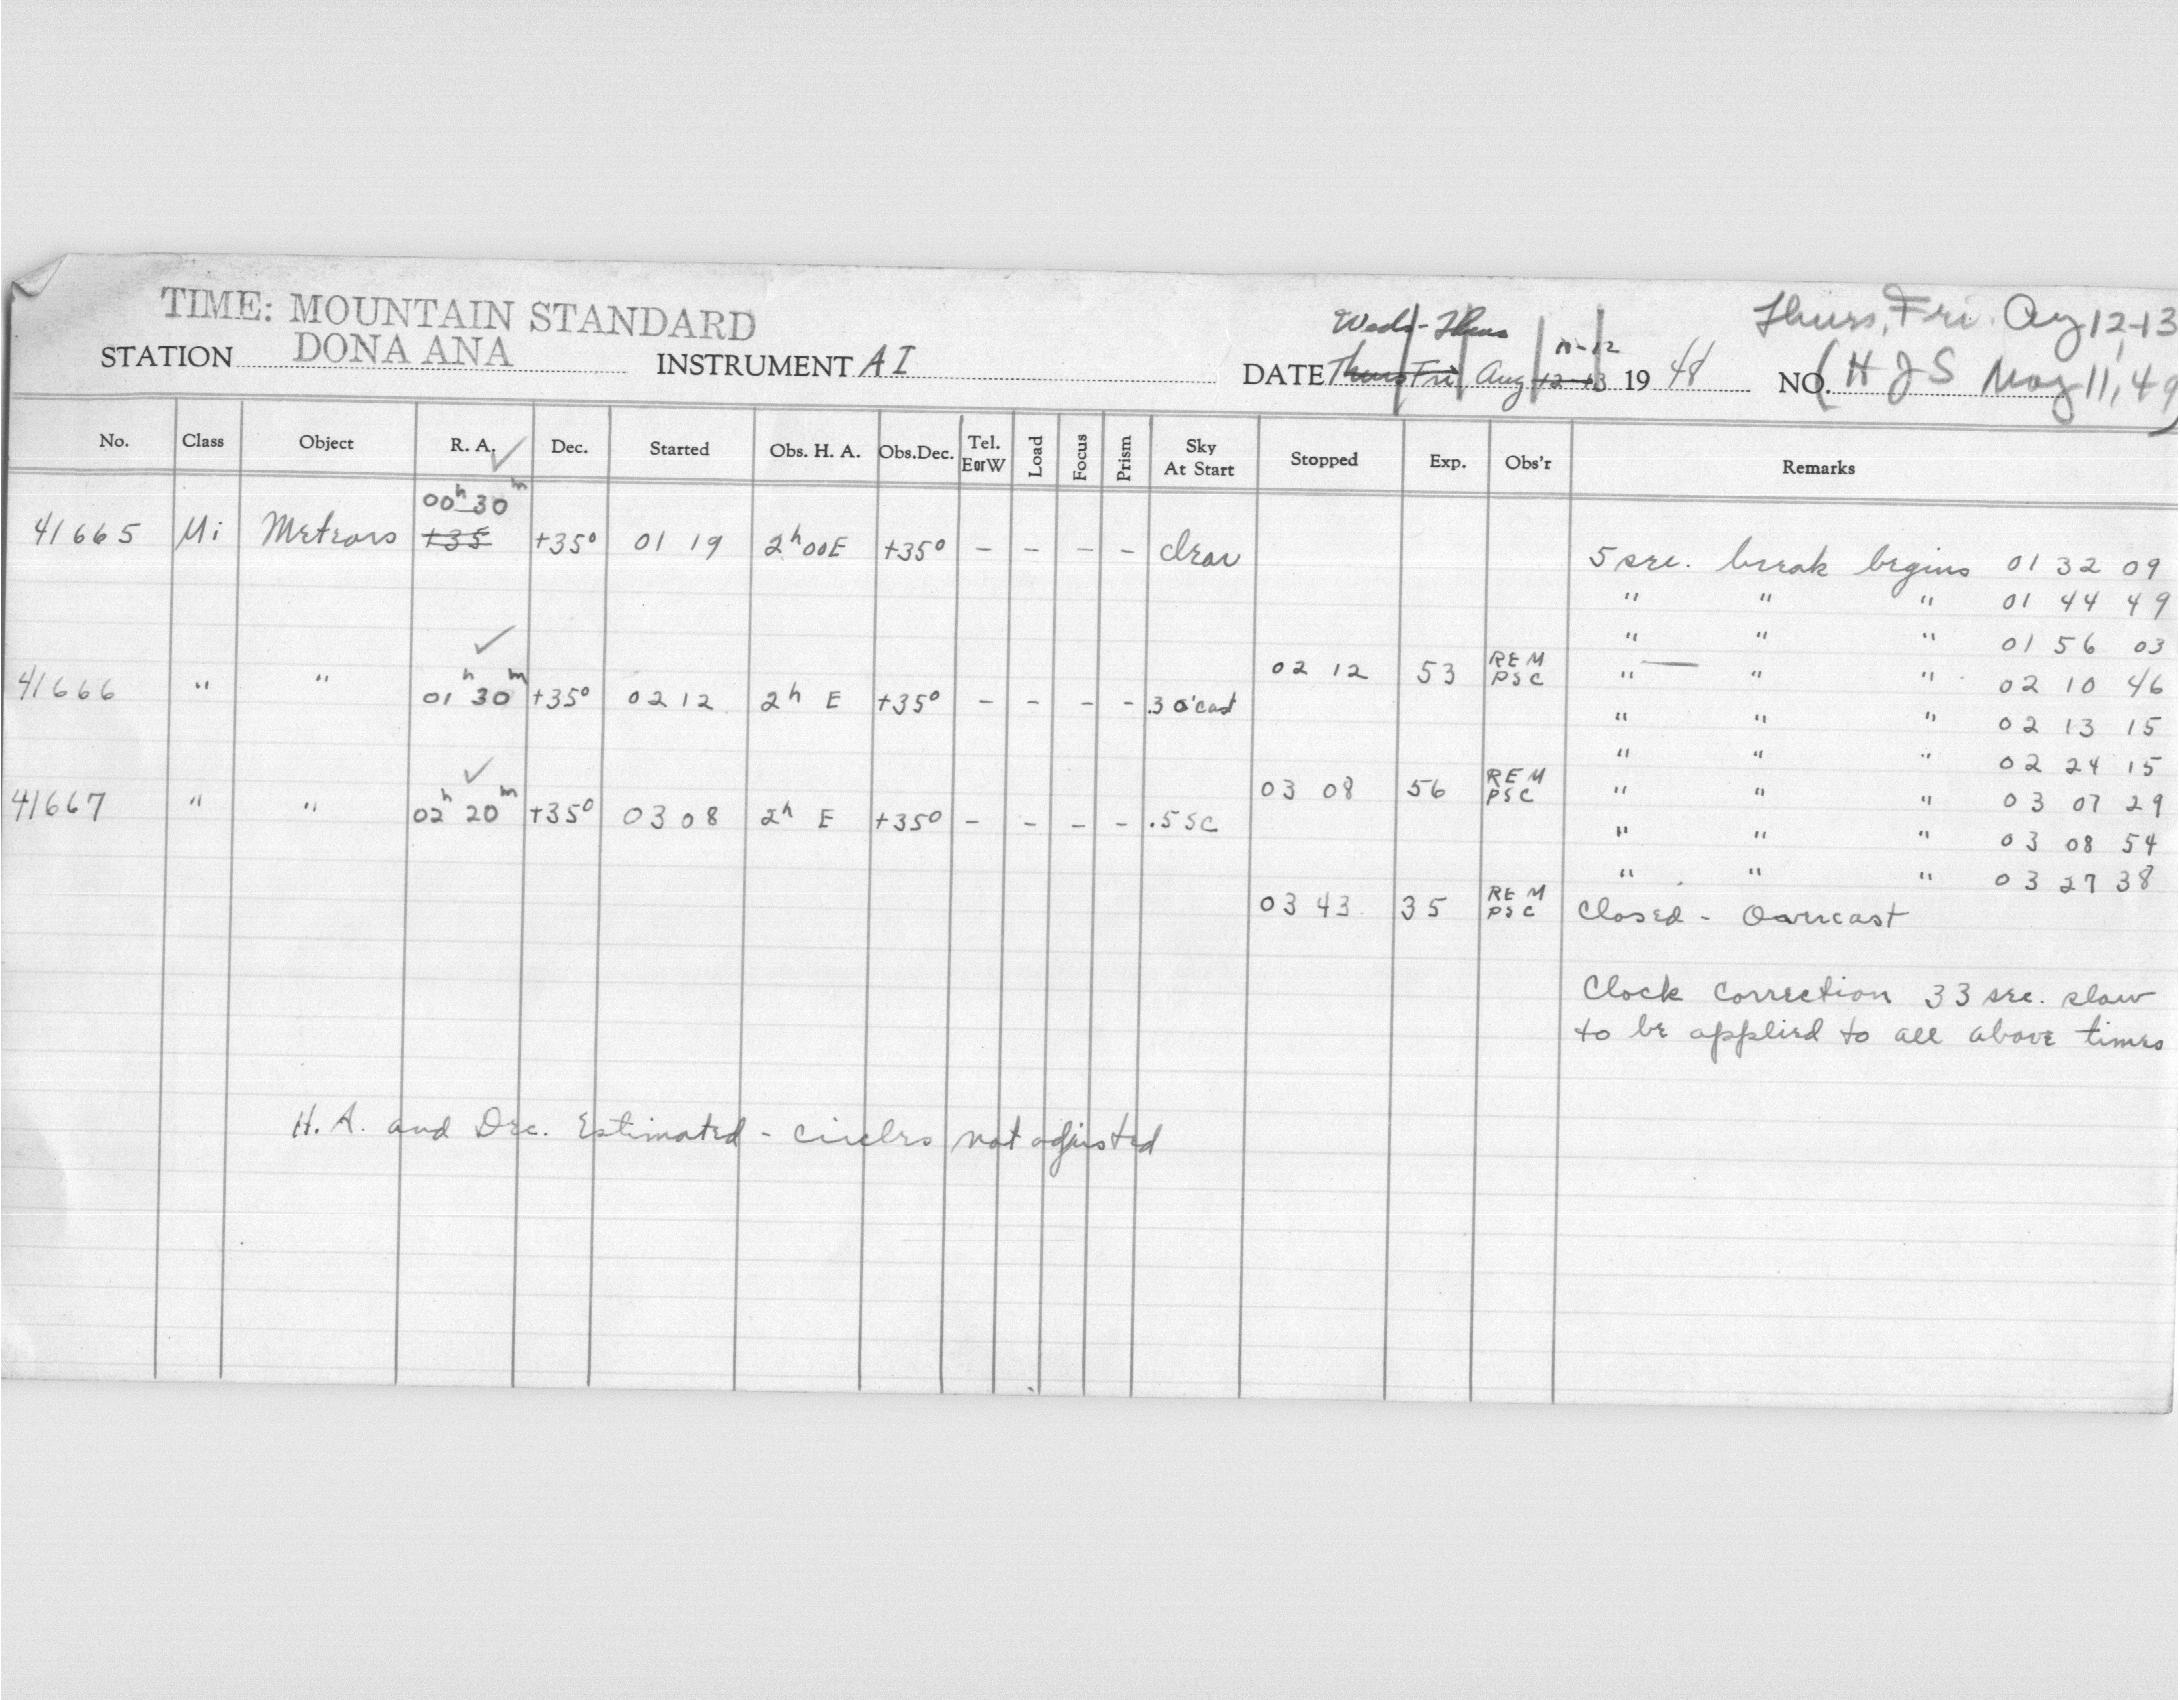 TIME: MOUNTAIN STANDARD
STATION DONA ANA INSTRUMENT AI
Weds-Thurs 11-12
DATE Thurs Fri Aug 12-13 1948 NO.
Thurs, Fri. Aug 12-13
(H J S May 11, 49)
No. Class Object R. A. Dec. Started Obs. H. A. Obs.Dec. Tel. E or W Load Focus Prism Sky At Start Stopped Exp. Obs'r Remarks
00h 30m
41665 Mi Meteors +35 +35° 01 19 2h 00E +35° - - - - clear
5 sec. break begins 01 32 09
" " " 01 44 49
" " " 01 56 03
02 12 53 REM PSC " " " 02 10 46
41666 " " 01h 30m +35° 02 12 2h E +35° - - - - .3 o'cast
" " " 02 13 15
" " " 02 24 15
03 08 56 REM PSC " " " 03 07 29
41667 " " 02h 20m +35° 03 08 2h E +35° - - - - .5 sc
" " " 03 08 54
" " " 03 27 38
03 43 35 REM PSC Closed - Overcast
Clock correction 33 sec. slow
to be applied to all above times
H. A. and Dec. Estimated - circles not adjusted